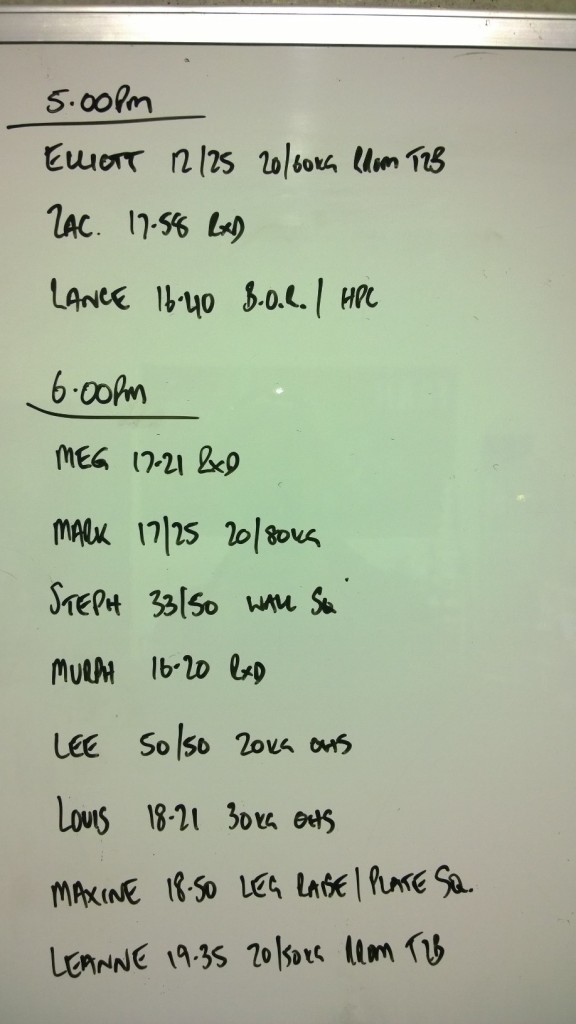 5.00PM
ELLIOTT 12/25 20/60KG RROM T2B
ZAC. 17-58 RXD
LANCE 16-40 B.O.R./ HPC
6.00PM
MEG 17-21 RXD
MARK 17/25 20/80KG
STEPH 33/50 WALL SQ
MURPH 16-20 RXD
LEE 50/50 20KG OHS
LOUIS 18-21 30KG OHS
MAXINE 18-50 LEG RAISE / PLATE SQ.
LEANNE 19-35 20/50KG RROM T2B